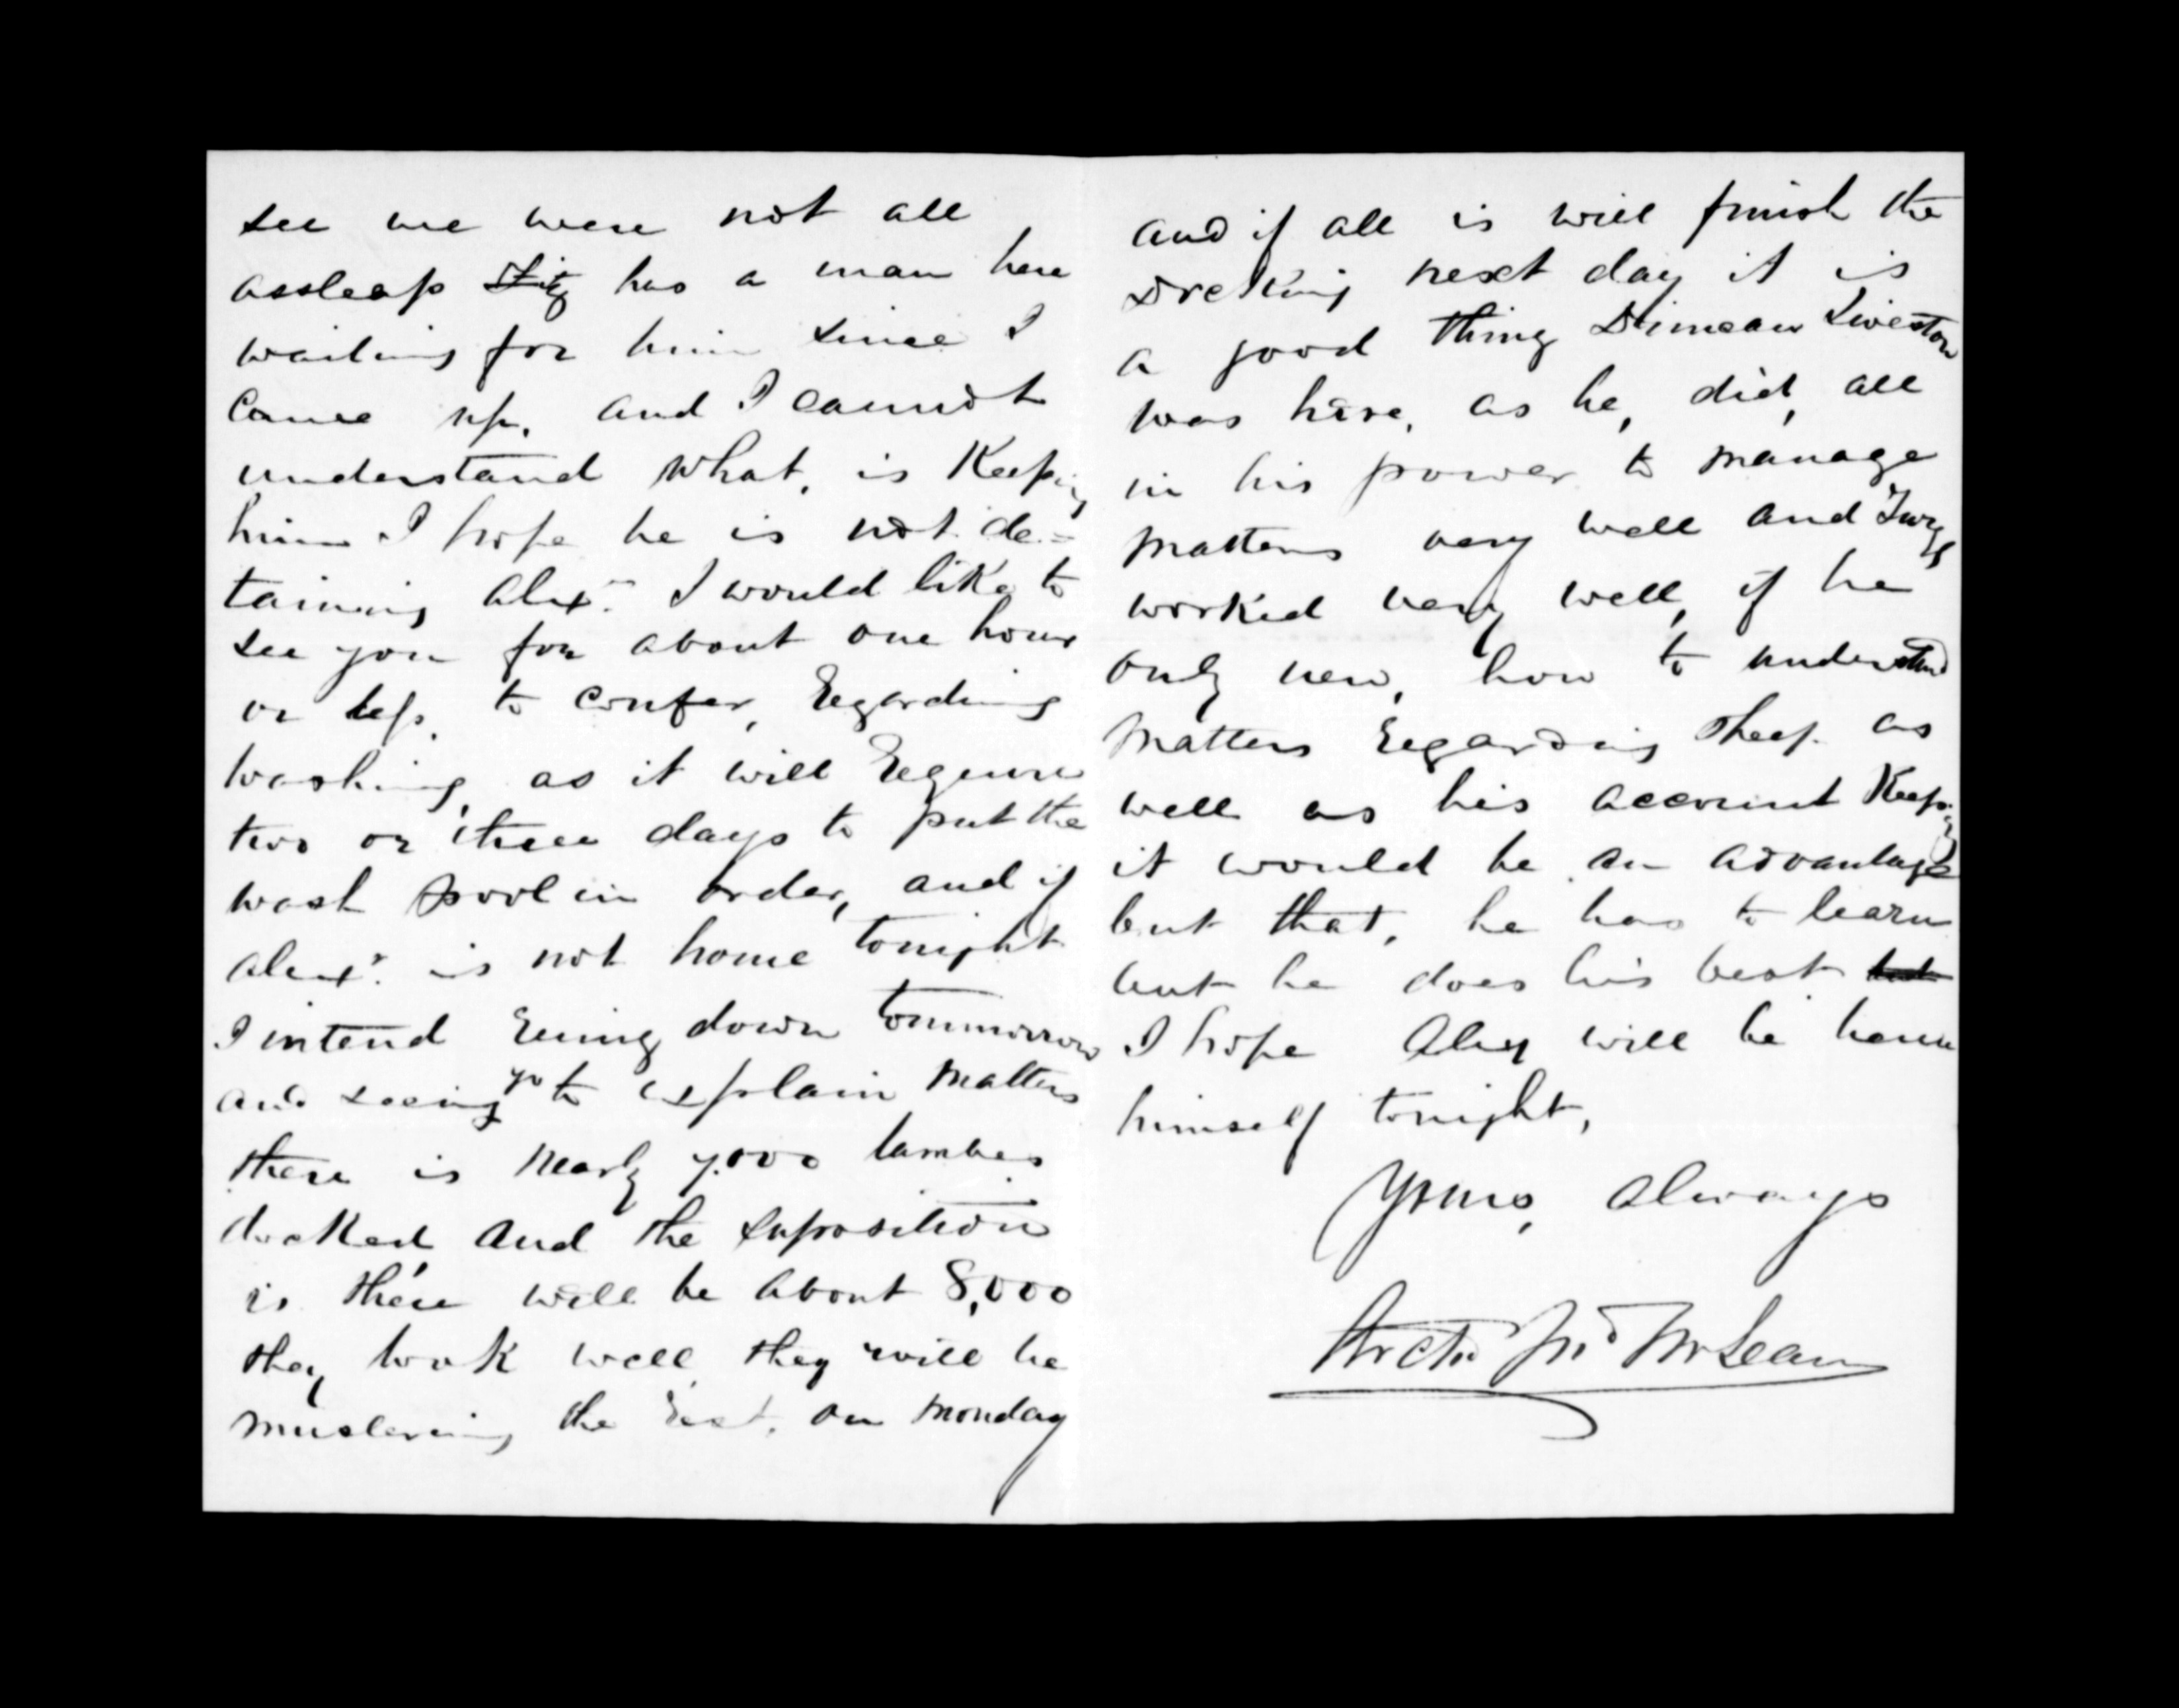 see we were not all
assleap has a man here
waiting for him since I
came up. and I cannot
understand what, is Keeping
him I hope he is not de=
taining Alexr. I would like to
see you for about one hour
or less, to confer, Regarding
washing, as it will Requre
two or three days to put the
wash pool in order, and if
Alexr. is not home tonight
I intend Runig down tommorrow
and seeing yo to explain matters
there is Nearly 7.000 lambes
docked and the suposition
is there will be about 8,000
they look well they will be
mustering the Rest. on Monday
and if all is will finish the
Docking next day it is
a good thing
was here, as he, did, all
in his power to manage
matters very well and
worked very well, if he
only new, how to understand
matters Regarding Sheep as
well as his account Keeping
it would be an advantage
but that, he has to learn
but he does his best but
I hope Alex will be home
himself tonight,
Yours, always
Archd Jno McLean